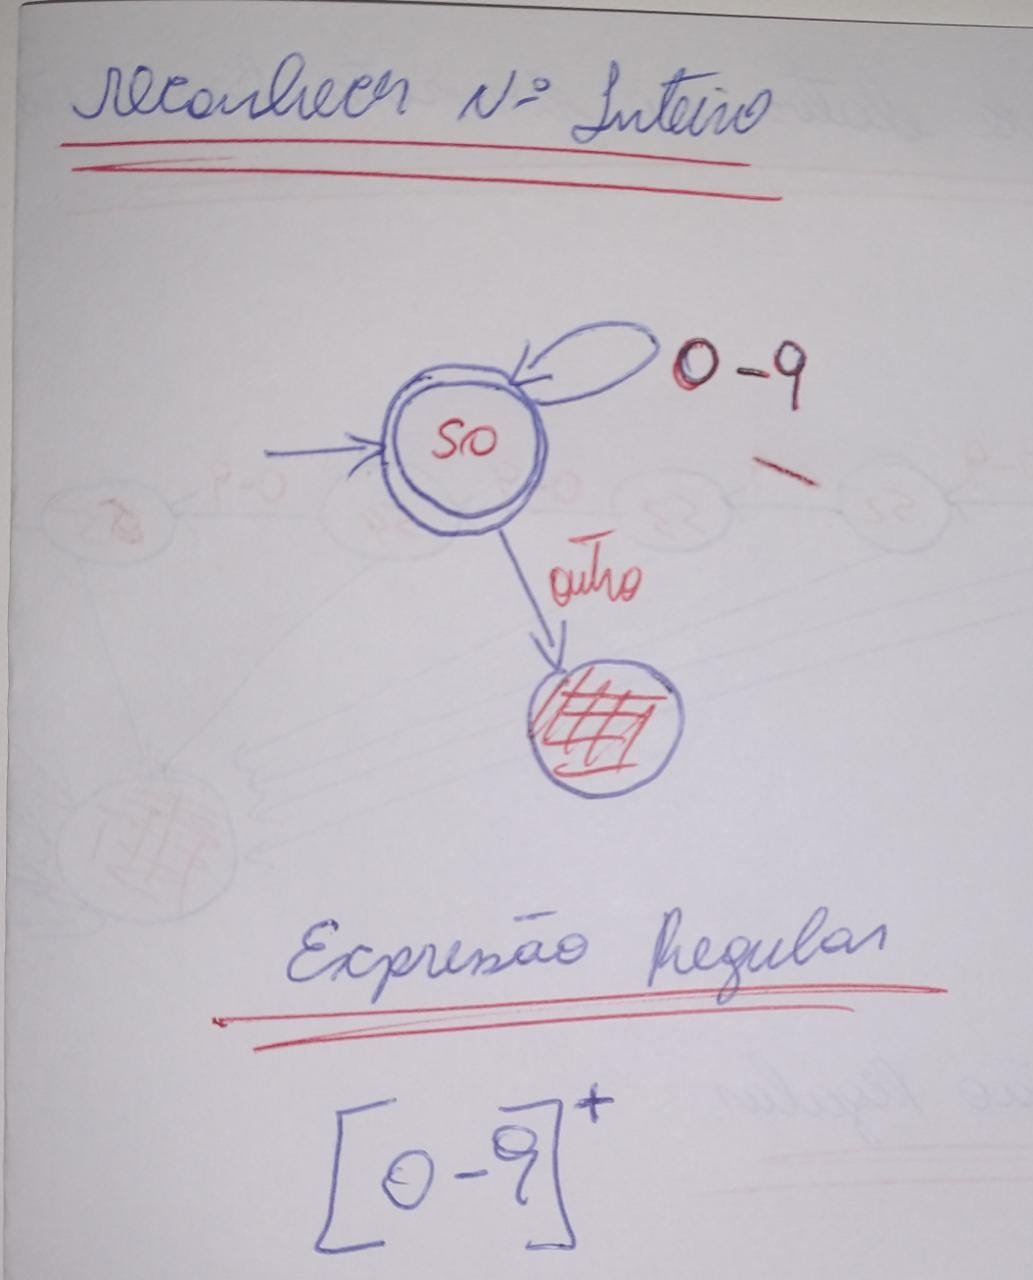 reconhecer Nº Inteiro
0-9
S0
outro
Expressão Regular
[0-9]+